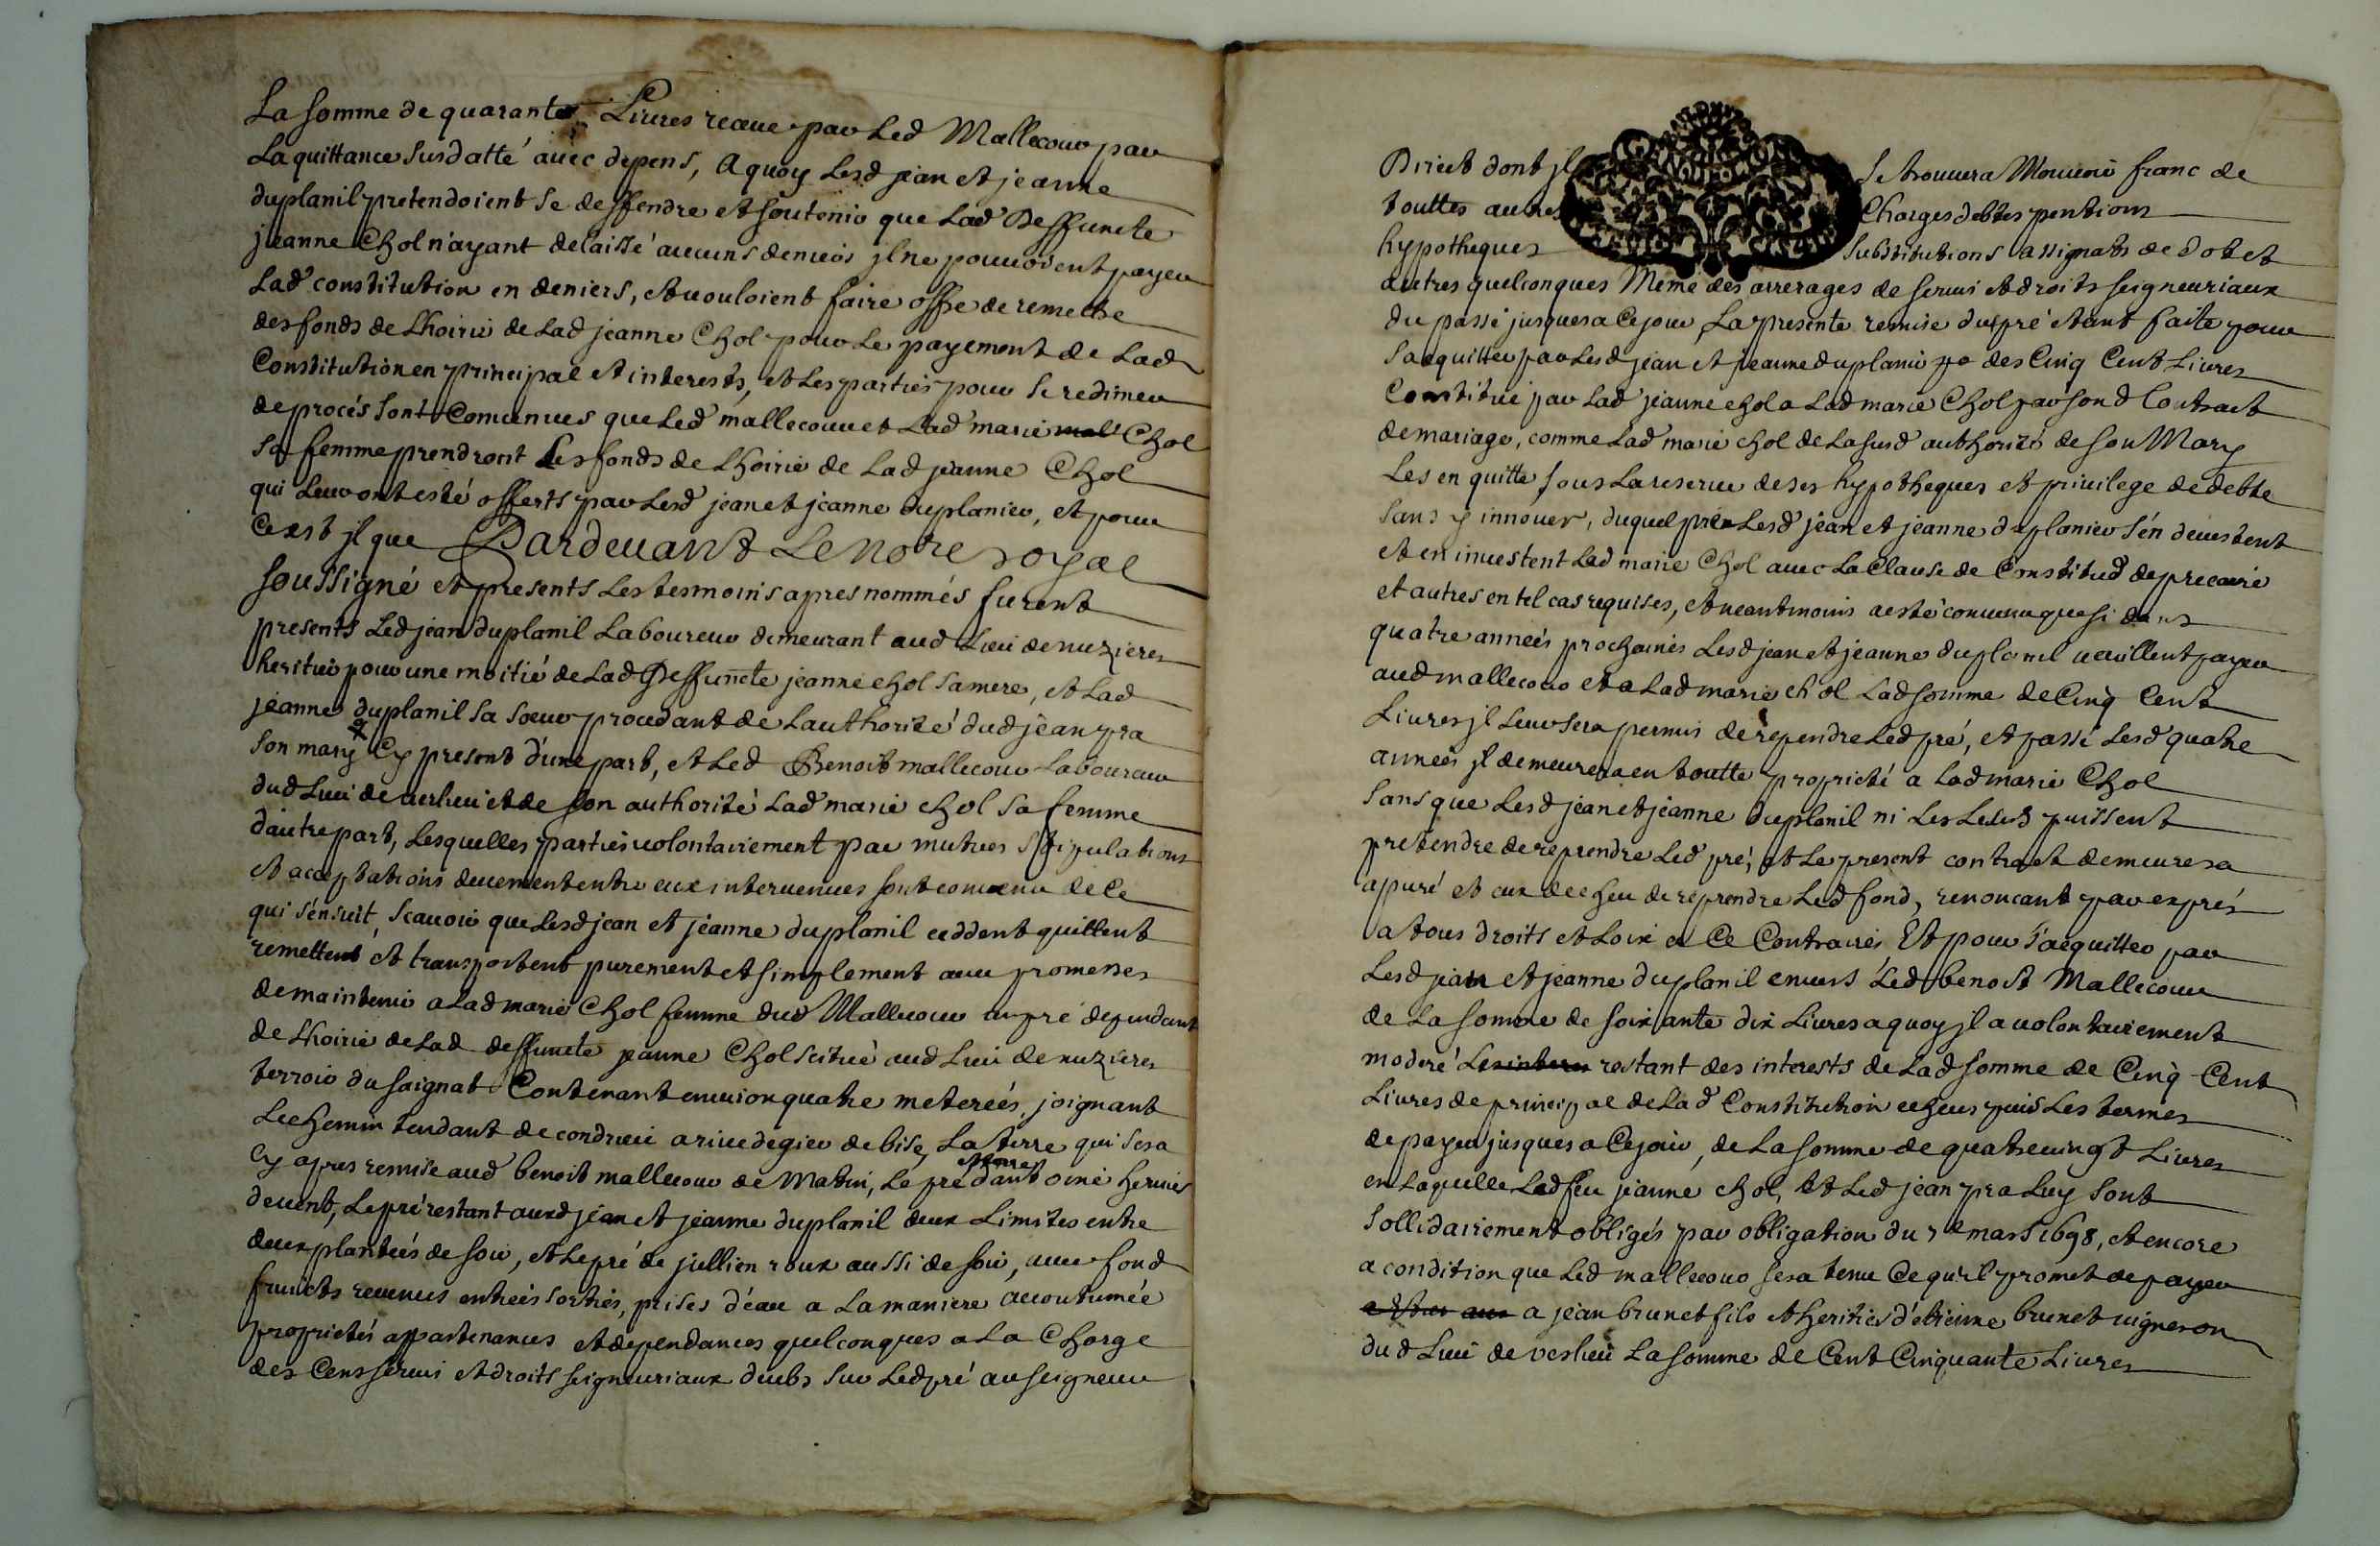 La somme de quarante Livres receue par Led Mallecour par
La quittance susdatté avec depens, a quoy Lesd jean et jeanne
duplanil pretendoient se deffendre et soutenir que Lad Deffuncte
jeanne Chol n'ayant delaissé aucuns deniers jl ne pouvoient payer
Lad constitution en deniers, et vouloient faire offre de remettre
des fonds de Lhoirie de Lad jeanne Chol pour Le payement de Lad
Constitution en principal et interests, et Les parties pour se redimer
de procés sont Convenues que Led mallecour et Lad marie mall Chol
sa femme prendront Les fonds de Lhoirie de Lad jeanne Chol
qui Leur ont esté offerts par Lesd jean et jeanne duplanier, et pour
Ce est jl que Pardevant Le Notre royal
soussigné et presents Les tesmoins apres nommés furent
presents Led jean duplanil Laboureur demeurant aud Lieu de nuzieres
heritier pour une moitié de Lad Deffuncte jeanne chol sa mere, et Lad
jeanne duplanil sa soeur procedant de Lauthorité dud jean pra
son mary Cy present d'une part, et Led Benoit mallecour Laboureur
dud Lieu de verlieu et de son authorité Lad marie chol sa femme
dautre part, Lesquelles parties volontairement par mutues stipulations
et acceptations deuement entre eux intervenues sont convenu de Ce
qui s'ensuit, scavoir que Lesd jean et jeanne duplanil ceddent quittent
remettent et transportent purement et simplement avec promesses
de maintenir a Lad marie Chol femme dud Mallecour un pré dependant
de Lhoirie de Lad deffuncte jeanne Chol scitué aud Lieu de nuzieres
terroir du saignat Contenant environ quatre meterées, joignant
Le chemin tendant de condrieu a rivedegier de bise, La terre qui sera
Cy apres remise aud benoit mallecour de Matin, Le pré dantoine hervier
de vent, Le pré restant auxd jean et jeanne duplanil deux Limites entre
deux plantées de soir, et Le pré de jullien roux aussi de soir, avec fond
fruicts revenus entrées sorties, prises d'eau a La maniere accoutumée
proprietés appartenances et dependances quelconques a La Charge
des Cens servis et droits seigneuriaux deubs sur Led pré au seigneur
Direct dont jl se trouvera Mouvoir franc de
touttes autres Charges debtes pentions
hypotheques substitutions assignats de dot et
autres quelconques Meme des arrerages de servis et droits seigneuriaux
du passé jusques a Ce jour, La presente remise du pré etant faite pour
s'acquitter par Lesd jean et jeanne duplanier des Cinq Cent Livres
Constitué par Lad jeanne chol a Lad marie Chol par sond Contract
de mariage, comme Lad marie chol de La susd authorité de son Mary
Les en quitte sous La reserve de ses hypotheques et privilege de debte
sans y innover, duquel pré Lesd jean et jeanne duplanier s'en devestent
et en investent Lad marie Chol avec La Clause de Constitud de precaire
et autres en tel cas requises, et neantmoins a esté convenu que si dans
quatre années prochaines Lesd jean et jeanne duplanil veuillent payer
aud mallecour et a Lad marie chol Lad somme de Cinq Cent
Livres jl Leur sera permis de reprendre Led pré, et passé Lesd quatre
années jl demeurera en toutte proprieté a Lad marie Chol
sans que Lesd jean et jeanne duplanil ni Les Leurs puissent
pretendre de reprendre Led pré, et Le present contract demeurera
apuré et eux decheu de reprendre Led fond, renoncant par exprés
a tous droits et Loix a Ce Contraires Et pour s'acquitter par
Lesd jean et jeanne duplanil envers Led benoit Mallecour
de La somme de soixante dix Livres a quoy jl a volontairement
moderé Les interes restant des interests de Lad somme de Cinq Cent
Livres de principal de Lad Constitution echeus puis Les termes
de payer jusques a Ce jour, de La somme de quatrevingt Livres
en Laquelle Lad feu jeanne chol, et Led jean pra Luy sont
sollidairement obligés par obligation du 7e mars 1698, et encore
a condition que Led mallecour sera tenu Ce qu'il promet de payer
a jean brunet fils et heritier d'etienne brunet vigneron
dud Lieu de verlieu La somme de Cent Cinquante Livres